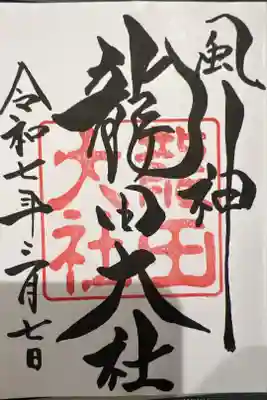 風神
龍田大社
龍田大社
令和七年三月七日